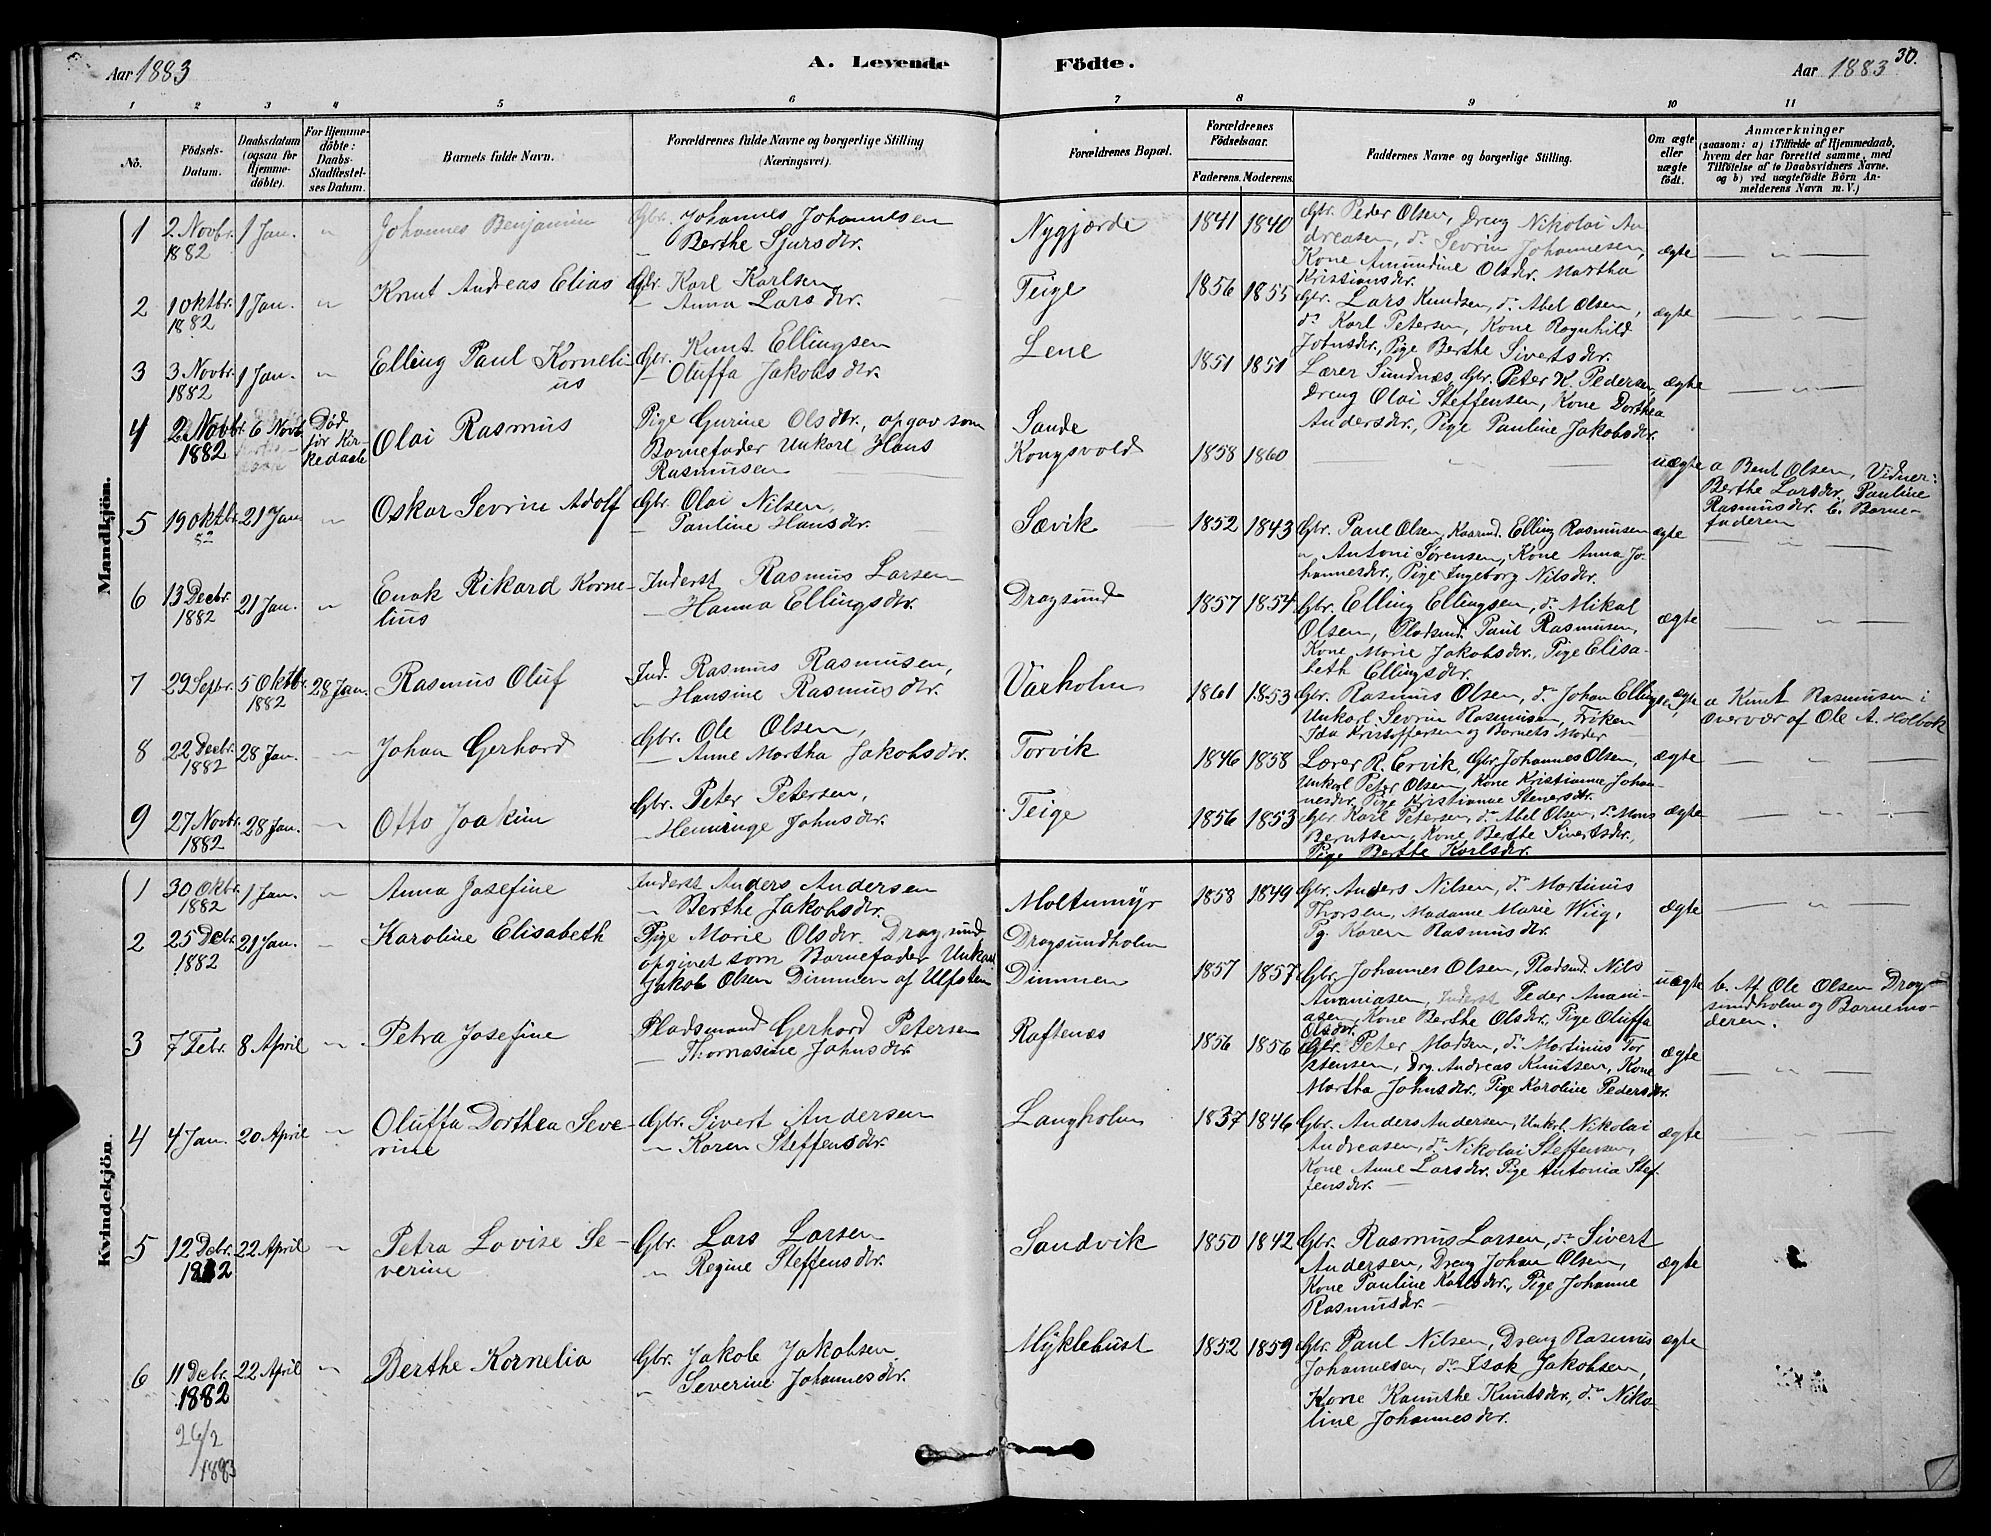 Aar 1883
A. Levende
Födte.
Aar 1883
30.
1 2 3 4 5 6 7 8 9 10 11
No.
Födsels-Datum.
Daabsdatum (ogsaa for Hjemmedöbte).
For Hjemmedöbte: Daabs-Stadfæstelses Datum.
Barnets fulde Navn.
Forældrenes fulde Navne og borgerlige Stilling (Næringsvei).
Forældrenes Bopæl.
Forældrenes Födselsaar.
Faderens. Moderens.
Faddernes Navne og borgerlige Stilling.
Om ægte eller uægte födt.
Anmærkninger
(saasom: a) i Tilfælde af Hjemmedaab, hvem der har forrettet samme, med Tilföielse af to Daabsvidners Navne. og b) ved uægtefödte Börn Anmelderens Navn m. V.)
Mandkjön.
1 2 Novbr. 1882 1 Jan. " Johannes Benjamin Gbr. Johannes Johannesen
Berthe Sjursdtr. Nygjærde 1841 1840 Gbr. Peder Olsen, Dreng Nikolai An-
dreasen, do Sevrin Johannesen,
Kone Amundine Olsdtr. Martha
Kristiansdtr. ægte — " —
2 1 Oktbr. 1882 1 Jan. " Knut Andreas Elias Gbr. Karl Karlsen
— Anna Larsdtr. Teige 1856 1855 Gbr. Lars Knudsen, do Abel Olsen,
do Karl Petersen, Kone Ragnhild
Johnsdtr., Pige Berthe Sivertsdtr. ægte — " —
3 3 Novbr. 1882 1 Jan. " Elling Paul Korneli-
us Gbr. Knut Ellingsen
— Oluffa Jakobsdtr. Lene 1851 1851 Lærer Sundnæs, Gbr. Peter K. Pedersen,
Dreng Olai Steffensen, Kone Dorthea
Andersdtr., Pige Pauline Jakobsdtr. ægte — " —
4 2 Novbr. 1882 6 Novb. Död för Kir-
kedaab Olai Rasmus Pige Gurine Olsdtr., opgav som
Barnefader Unkarl Hans
Rasmusen Sande
Kongsvold 1858 1860 — " — uægte a Bent Olsen, Vidner:
Berthe Larsdtr., Pauline
Rasmusdtr. b. Barne-
faderen
5 19 Oktbr. 82 21 Jan. " Oskar Sevrin Adolf Gbr. Olai Nilsen,
Pauline Hansdtr. Sævik 1852 1843 Gbr. Paul Olsen, Elling Rasmusen
" Antoni Sørensen, Kone Anna Jo-
hannesdtr., Pige Ingeborg Nilsdtr. ægte — " —
6 13 Decbr. 1882 21 Jan. " Enok Rikard Korne-
lius Inderst Rasmus Larsen
— Hanna Ellingsdtr. Dragsund 1857 1854 Gbr. Elling Ellingsen, do Mikal
Olsen, Pladsmd. Paul Rasmusen,
Kone Marie Jakobsdtr., Pige Elisa-
beth Ellingsdtr. ægte — " —
7 29 Septbr. 5 Oktbr. 1882 28 Jan. Rasmus Oluf Ind. Rasmus Rasmusen,
" Hansine Rasmusdtr. Varholm 1861 1853 Gbr. Rasmus Olsen, do Johan Ellingsen,
Unkarl Sevrin Rasmusen, Frøken
Ida Kristoffersen og Barnets Moder ægte a Knut Rasmusen i
Overvær af Ole A. Holbok
8 22 Decbr. 1882 28 Jan. — Johan Gerhard Gbr. Ole Olsen,
— Anne Martha Jakobsdtr. Torvik 1846 1858 Lærer R. Ervik, Gbr. Johannes Olsen,
Unkarl Peter Olsen, Kone Kristianne Johan-
nesdtr, Pige Kristianne Stenersdtr. ægte — " —
9 27 Novbr. 1882 28 Jan. — Otto Joakim Gbr. Peter Petersen,
— Henringe Johnsdtr. Teige 1856 1853 Gbr. Karl Petersen, do Abel Olsen, do Mons
Berntsen, Kone Berthe Sivertsdtr.,
Pige Berthe Karlsdtr. ægte — " —
Kvindekjön.
1 30 Oktbr. 1882 1 Jan. " Anna Josefine Inderst Anders Andersen
" Berthe Jakobsdtr. Moltumyr 1858 1849 Gbr. Anders Nilsen, do Martinus
Thorsen, Madame Marie Wiig,
Pg. Karen Rasmusdtr. ægte — " —
2 25 Decbr. 1882 21 Jan. " Karoline Elisabeth Pige Marie Olsdtr. Dragsund
opgivet som Barnefader Unkarl
Jakob Olsen Dimmen af Ulfsten Dragsundholm
Dimmen 1857 1857 Gbr. Johannes Olsen, Pladsmd. Nils
Ananiasen, Inderst Peder Anani-
asen, Kone Berthe Olsdtr., Pige Oluffa
Olsdtr. uægte b. Af Ole Olsen Drag-
sundholm og Barnemo-
deren.
3 7 Febr. 8 April " Petra Josefine Pladsmand Gerhard Petersen
— Thomasine Johnsdtr. Raftenæs 1856 1856 Gbr. Peter Madsen, do Martinus Tor-
stensen, Drg. Andreas Knutsen, Kone
Martha Johnsdtr., Pige Karoline Pedersdtr. ægte — " —
4 4 Jan. 20 April " Oluffa Dorthea Seve-
rine Gbr. Sivert Andersen
" Karen Steffensdtr. Langholm 1837 1846 Gbr. Anders Andersen, Unkrl. Nikolai
Andreasen, do Nikolai Steffensen,
Kone Anne Larsdtr. Pige Antonia Stef-
fensdtr. — ægte — " —
5 12 Debr. 1882 22 April " Petra Lovise Se-
verine Gbr. Lars Larsen
" Regine Steffensdtr. Sandvik 1850 1842 Gbr. Rasmus Larsen, do Sivert
Andersen, Dreng Johan Olsen,
Kone Pauline Karlsdtr., Pige Johanne
Rasmusdtr. — ægte
6 11 Debr. 1882 22 April " Berthe Kornelia Gbr. Jakob Jakobsen
" Severine Johannesdtr. Myklebust 1852 1859 Gbr. Paul Nilsen, Dreng Rasmus
Johannesen, do Isak Jakobsen,
Kone Kanuthe Knutsdtr., do Niko-
line Johannesdtr. ægte
26/2 1883